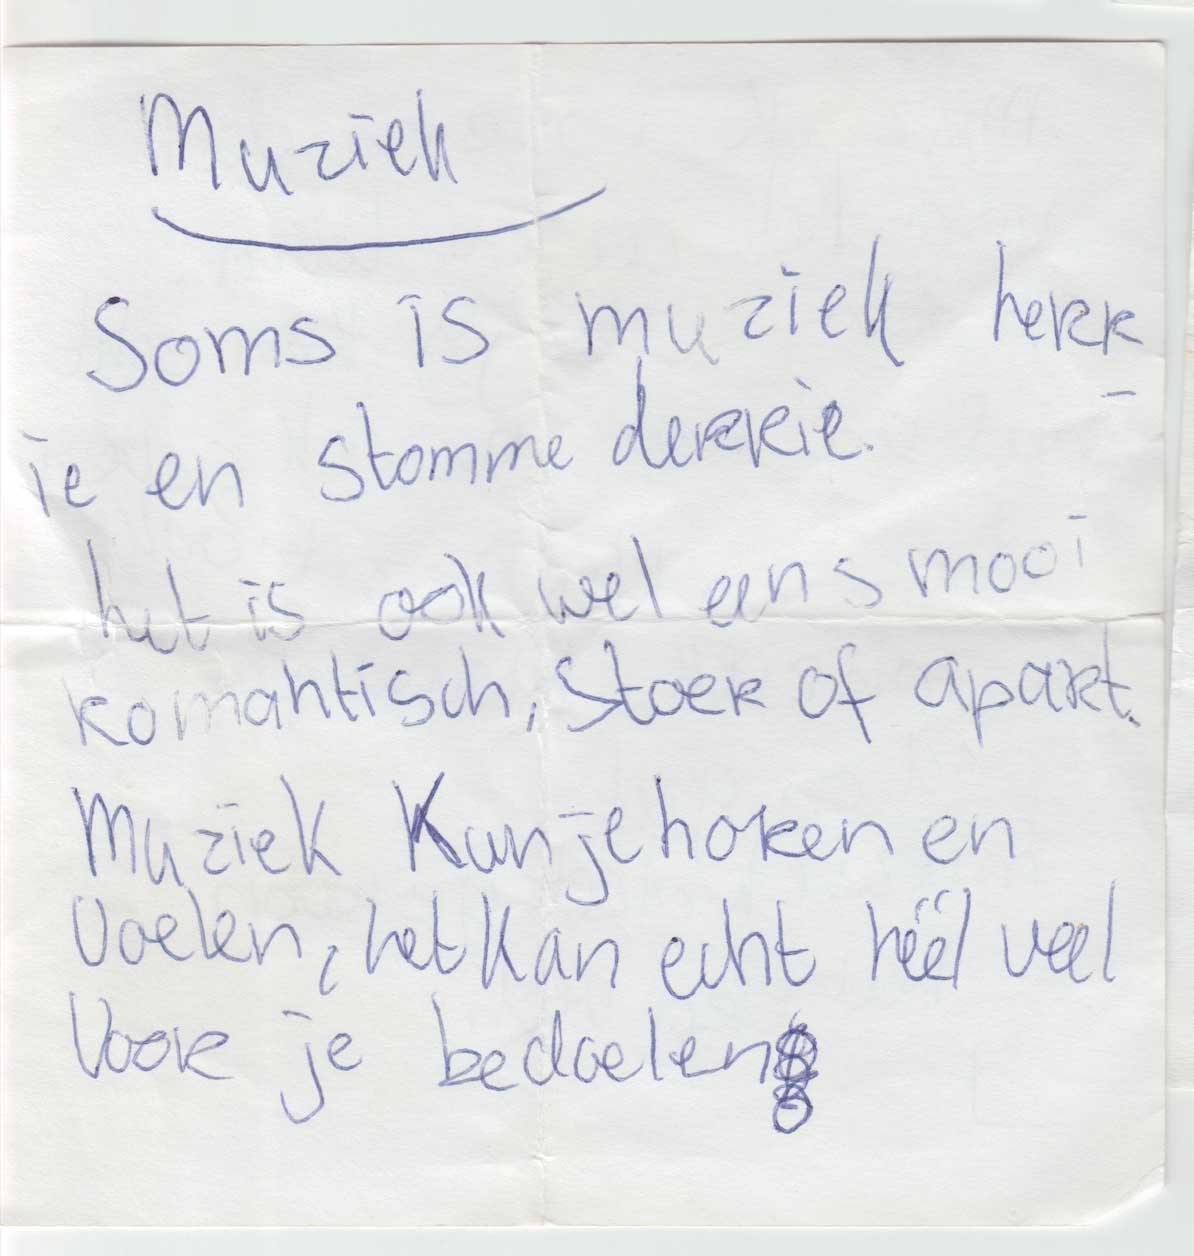 Muziek
Soms is muziek herr
-
ie en stomme derrie.
het is ook wel eens mooi
romantisch, stoer of apart.
Muziek Kun je horen en
voelen, het kan echt héél veel
Voor je bedoelen!